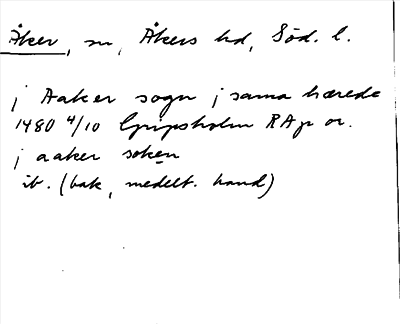 Åker, sn, Åkers hd, Söd. l.
j Aaker sogn j sama hærede
1480 4/10 Gripsholm RAp or.
j aaker soken
ib. (bak, medelt. hand)